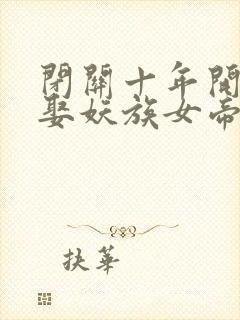 閉關十年開
娶妖族女帝
扶華